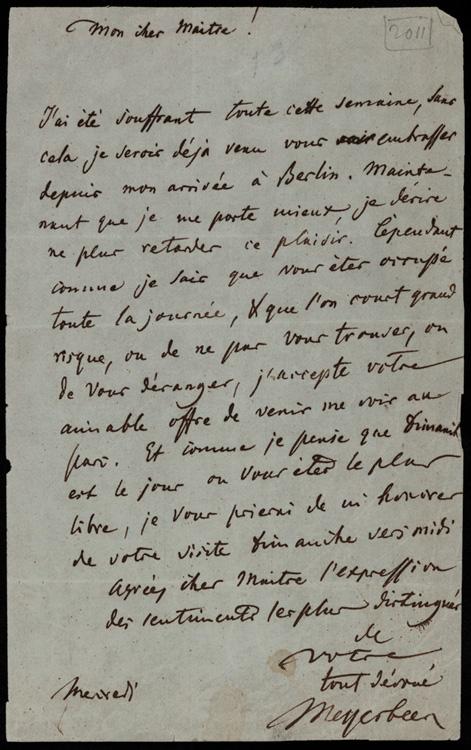 2011
Mon cher Maitre!
J'ai été souffrant toute cette semaine, sans
cela je serois déjà venu vous embrasser
depuis mon arrivée à Berlin. Mainte-
nant que je me porte mieux, je désire
ne plus retarder ce plaisir. Cependant
comme je sais que vous êtes occupé
toute la journée, & que l'on court grand
risque, ou de ne pas vous trouver, ou
de vous déranger, j'accepte votre
aimable offre de venir me voir au
parc. Et comme je pense que Dimanche
est le jour ou vous êtes le plus
libre, je vous prierai de m'honorer
de votre visite Dimanche vers midi
Agréez cher Maitre l'expression
des sentiments les plus distingués
de
votre
tout dévoué
Mercredi
Meyerbeer